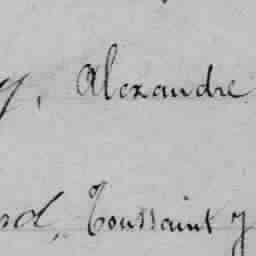 y, Alexandre
rd, Toussaint y